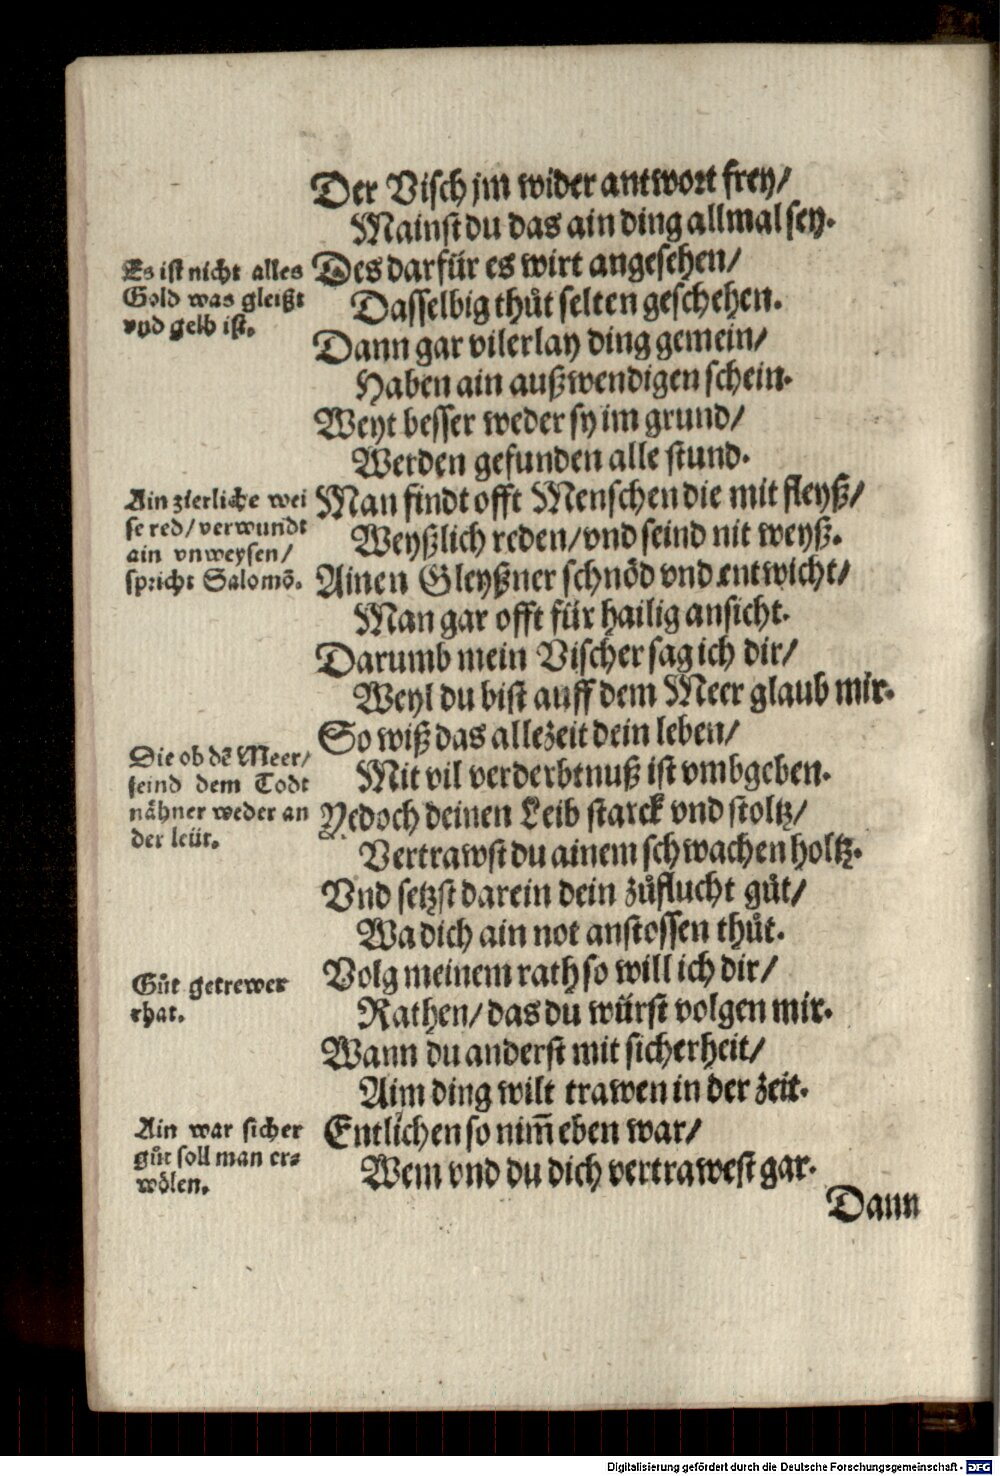 Der Visch jm wider antwort frey/
Mainst du das ain ding allmal sey.
Des darfür es wirt angesehen/
Dasselbig thůt selten geschehen.
Dann gar vilerlay ding gemein/
Haben ain außwendigen schein.
Weyt besser weder sy im grund/
Werden gefunden alle stund.
Man findt offt Menschen die mit fleyß/
Weyßlich reden/vnd seind nit weyß.
Ainen Gleyßner schnöd vnd entwicht/
Man gar offt für hailig ansicht.
Darumb mein Vischer sag ich dir/
Weyl du bist auff dem Meer glaub mir.
So wiß das allezeit dein leben/
Mit vil verderbtnuß ist vmbgeben.
Yedoch deinen Leib starck vnd stoltz/
Vertrawst du ainem schwachen holtz.
Vnd setzst darein dein zůflucht gůt/
Wa dich ain not anstossen thůt.
Volg meinem rath so will ich dir/
Rathen/das du würst volgen mir.
Wann du anderst mit sicherheit/
Aim ding wilt trawen in der zeit.
Entlichen so nim̃ eben war/
Wem vnd du dich vertrawest gar.
Dann
Es ist nicht alles
Gold was gleißt
vnd gelb ist.
Ain zierliche wei
se red/verwundt
ain vnweysen/
spricht Salomō.
Die ob dē Meer/
seind dem Todt
nähner weder an
der leüt.
Gůt getrewer
rhat.
Ain war sicher
gůt soll man er⸗
wölen.
Digitalisierung gefördert durch die Deutsche Forschungsgemeinschaft - DFG